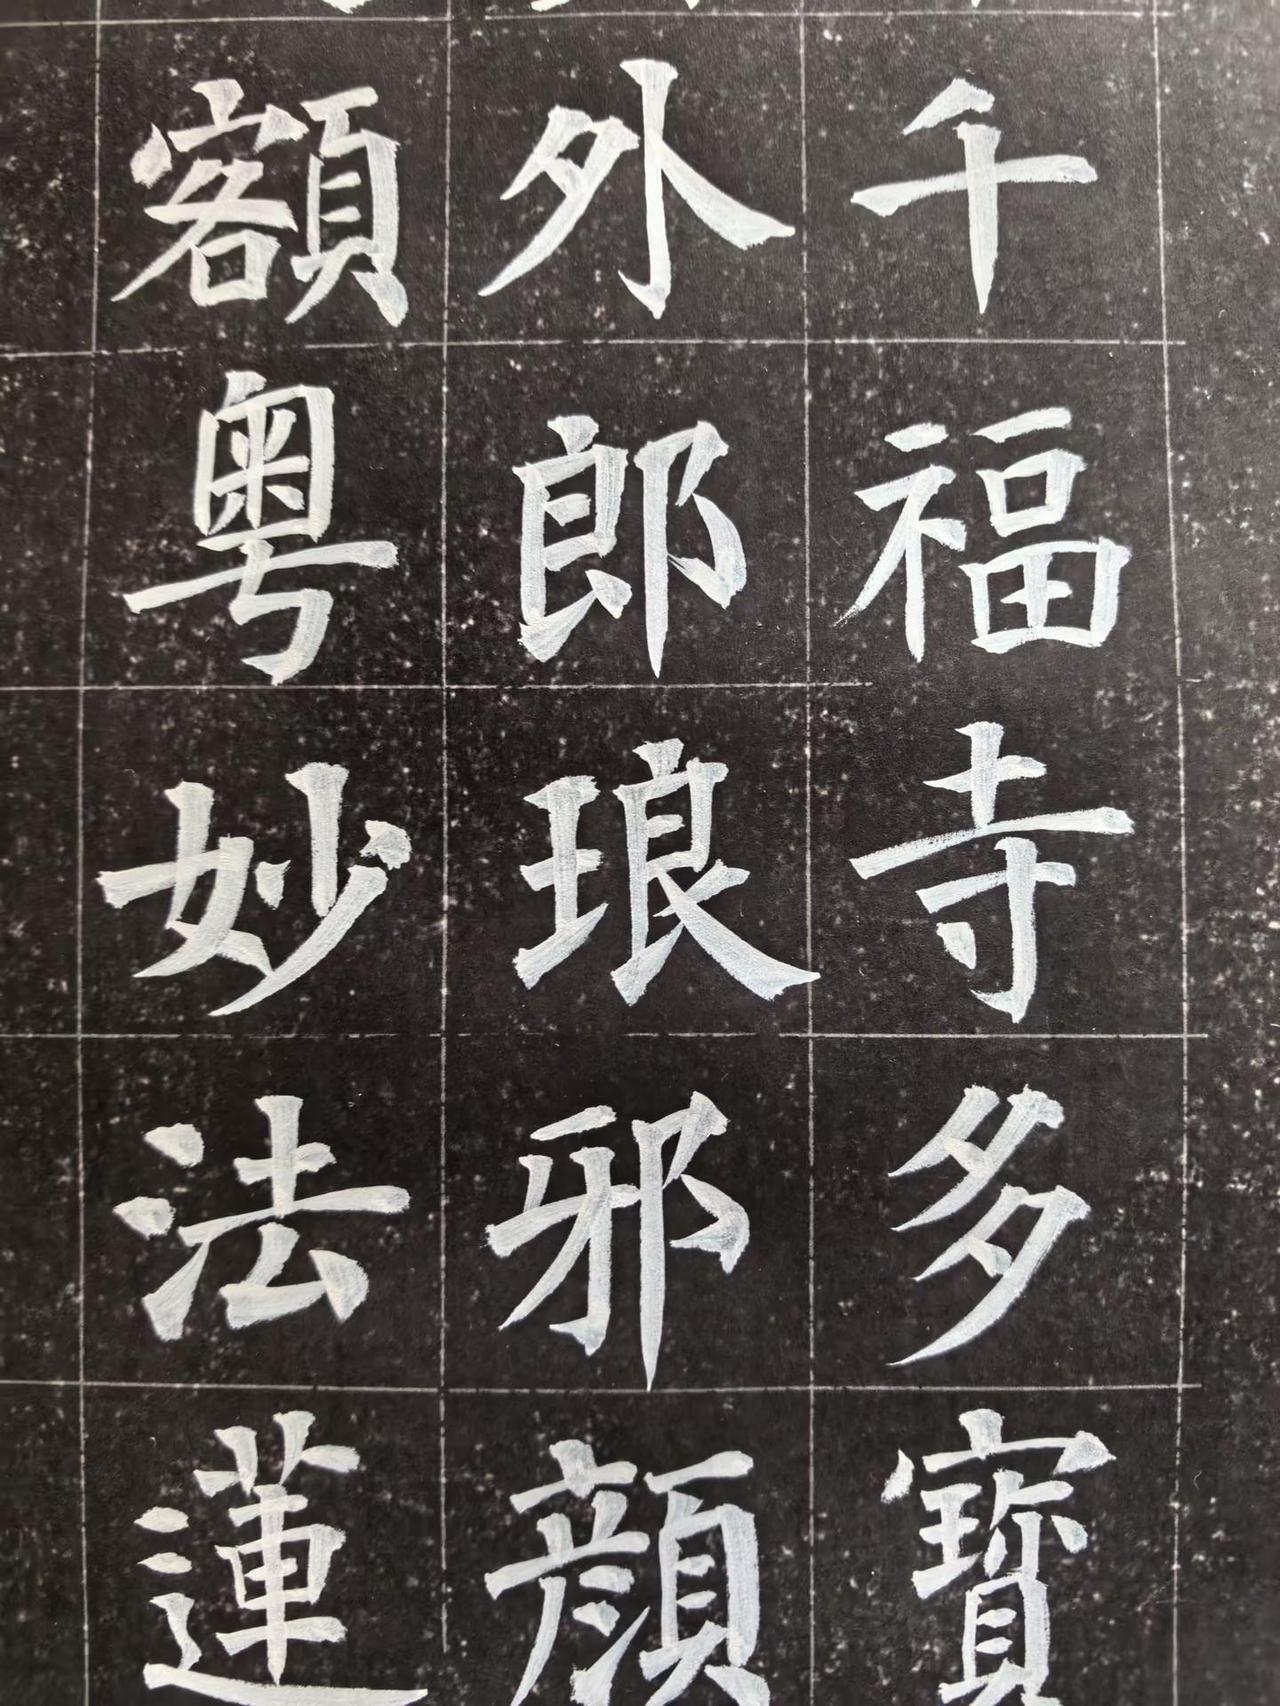 千福寺多寶
外郎琅邪顏
額粤妙法蓮